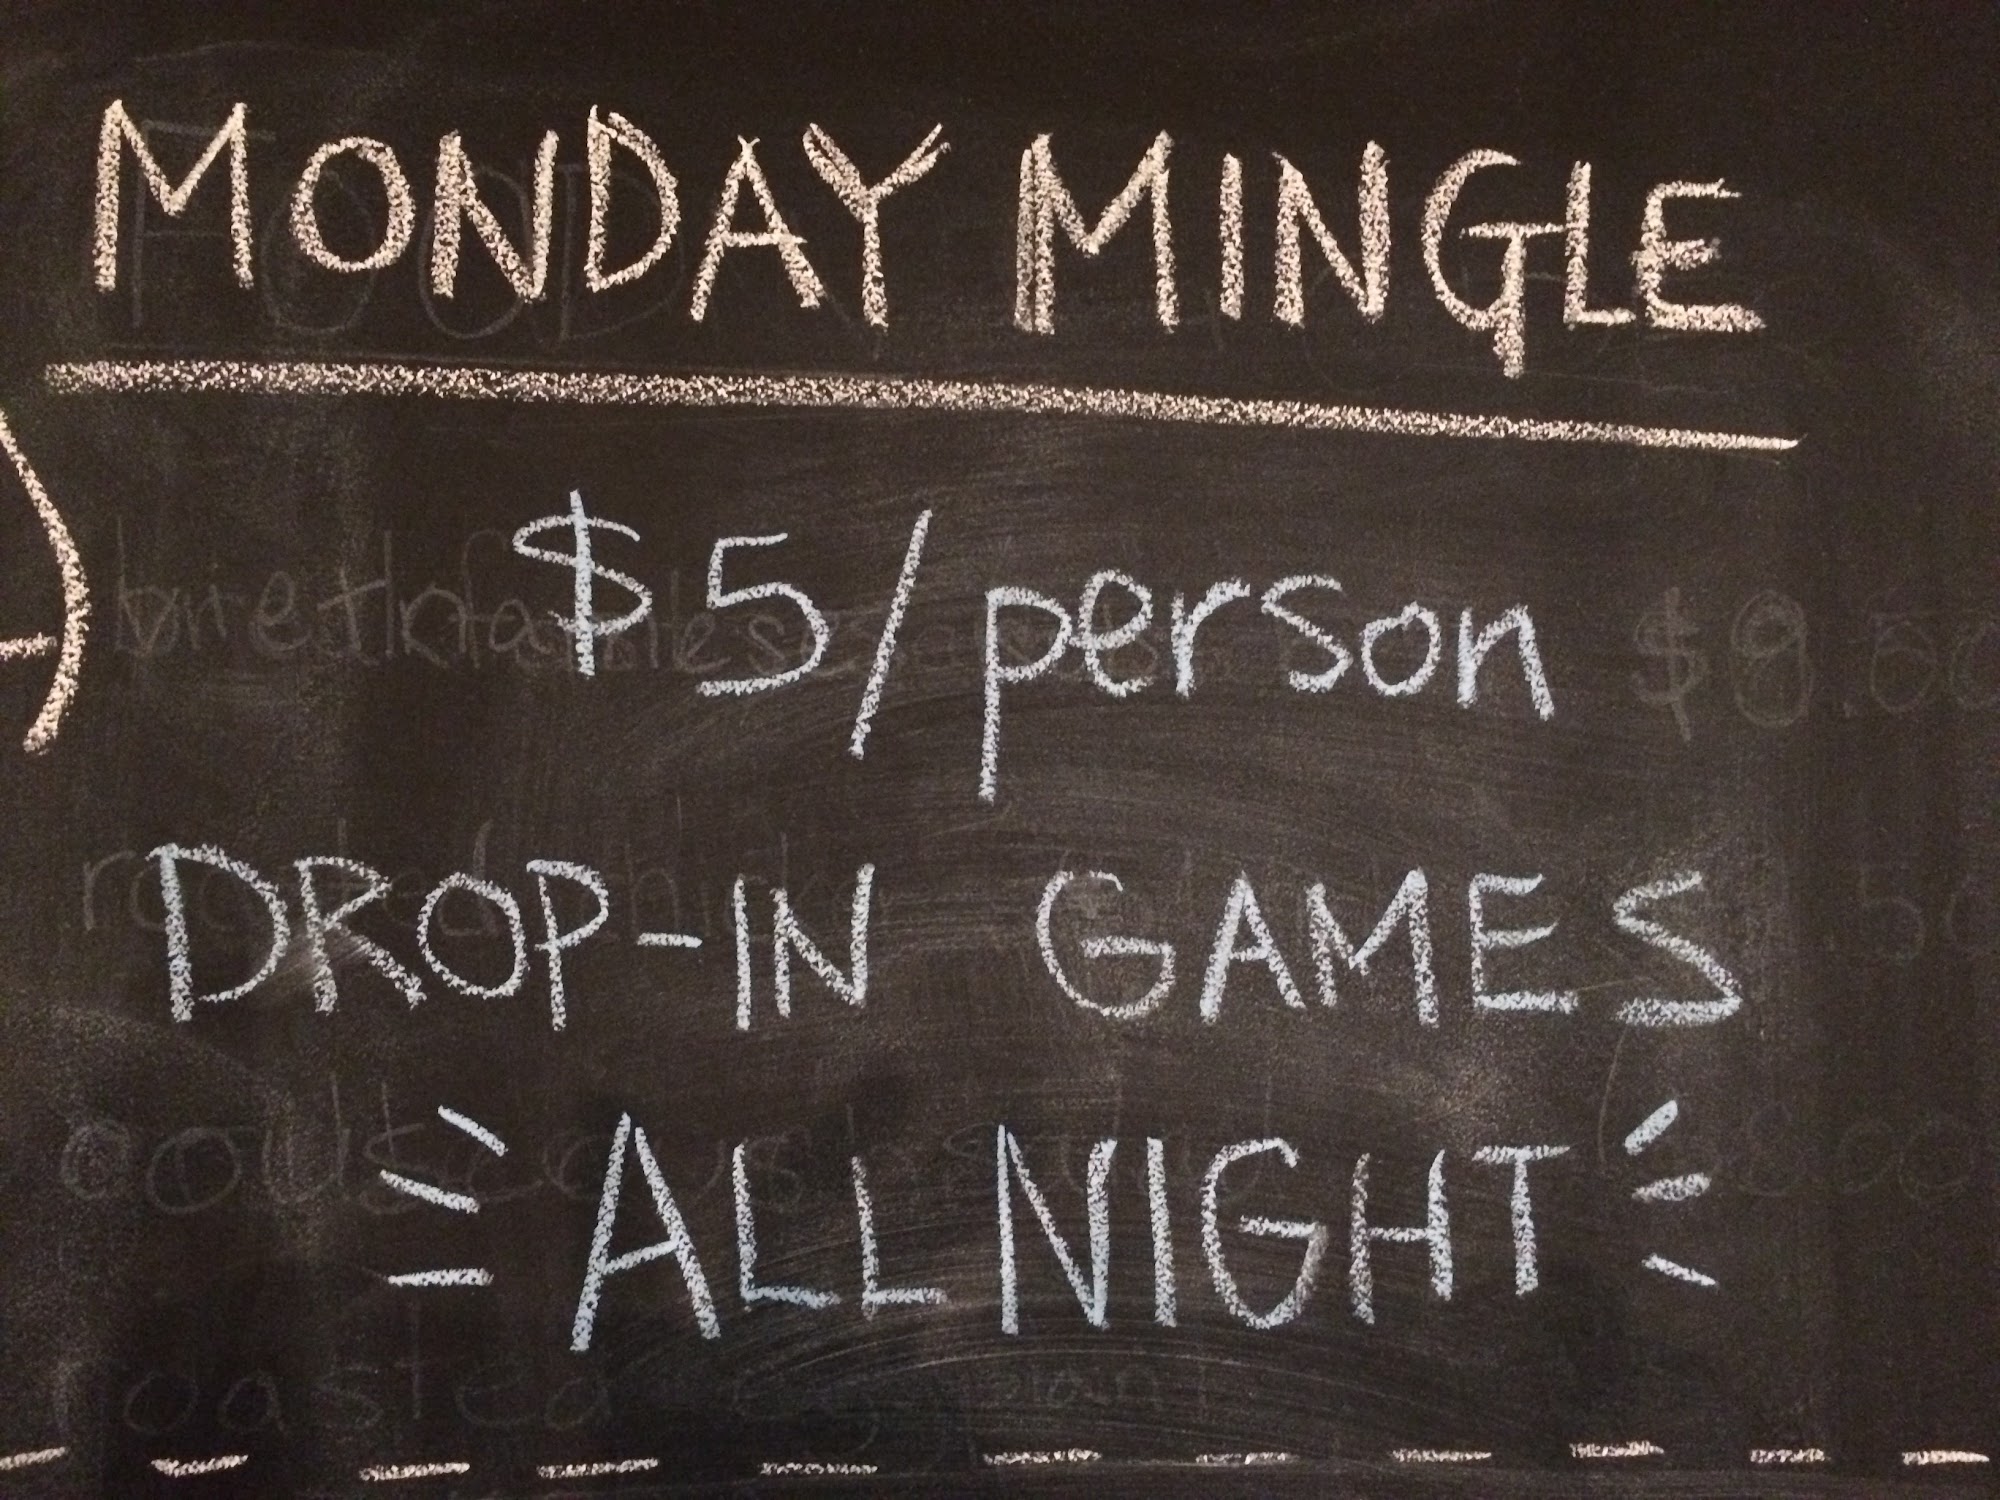 MONDAY MINGLE
$5/person
DROP-IN GAMES
ALL NIGHT